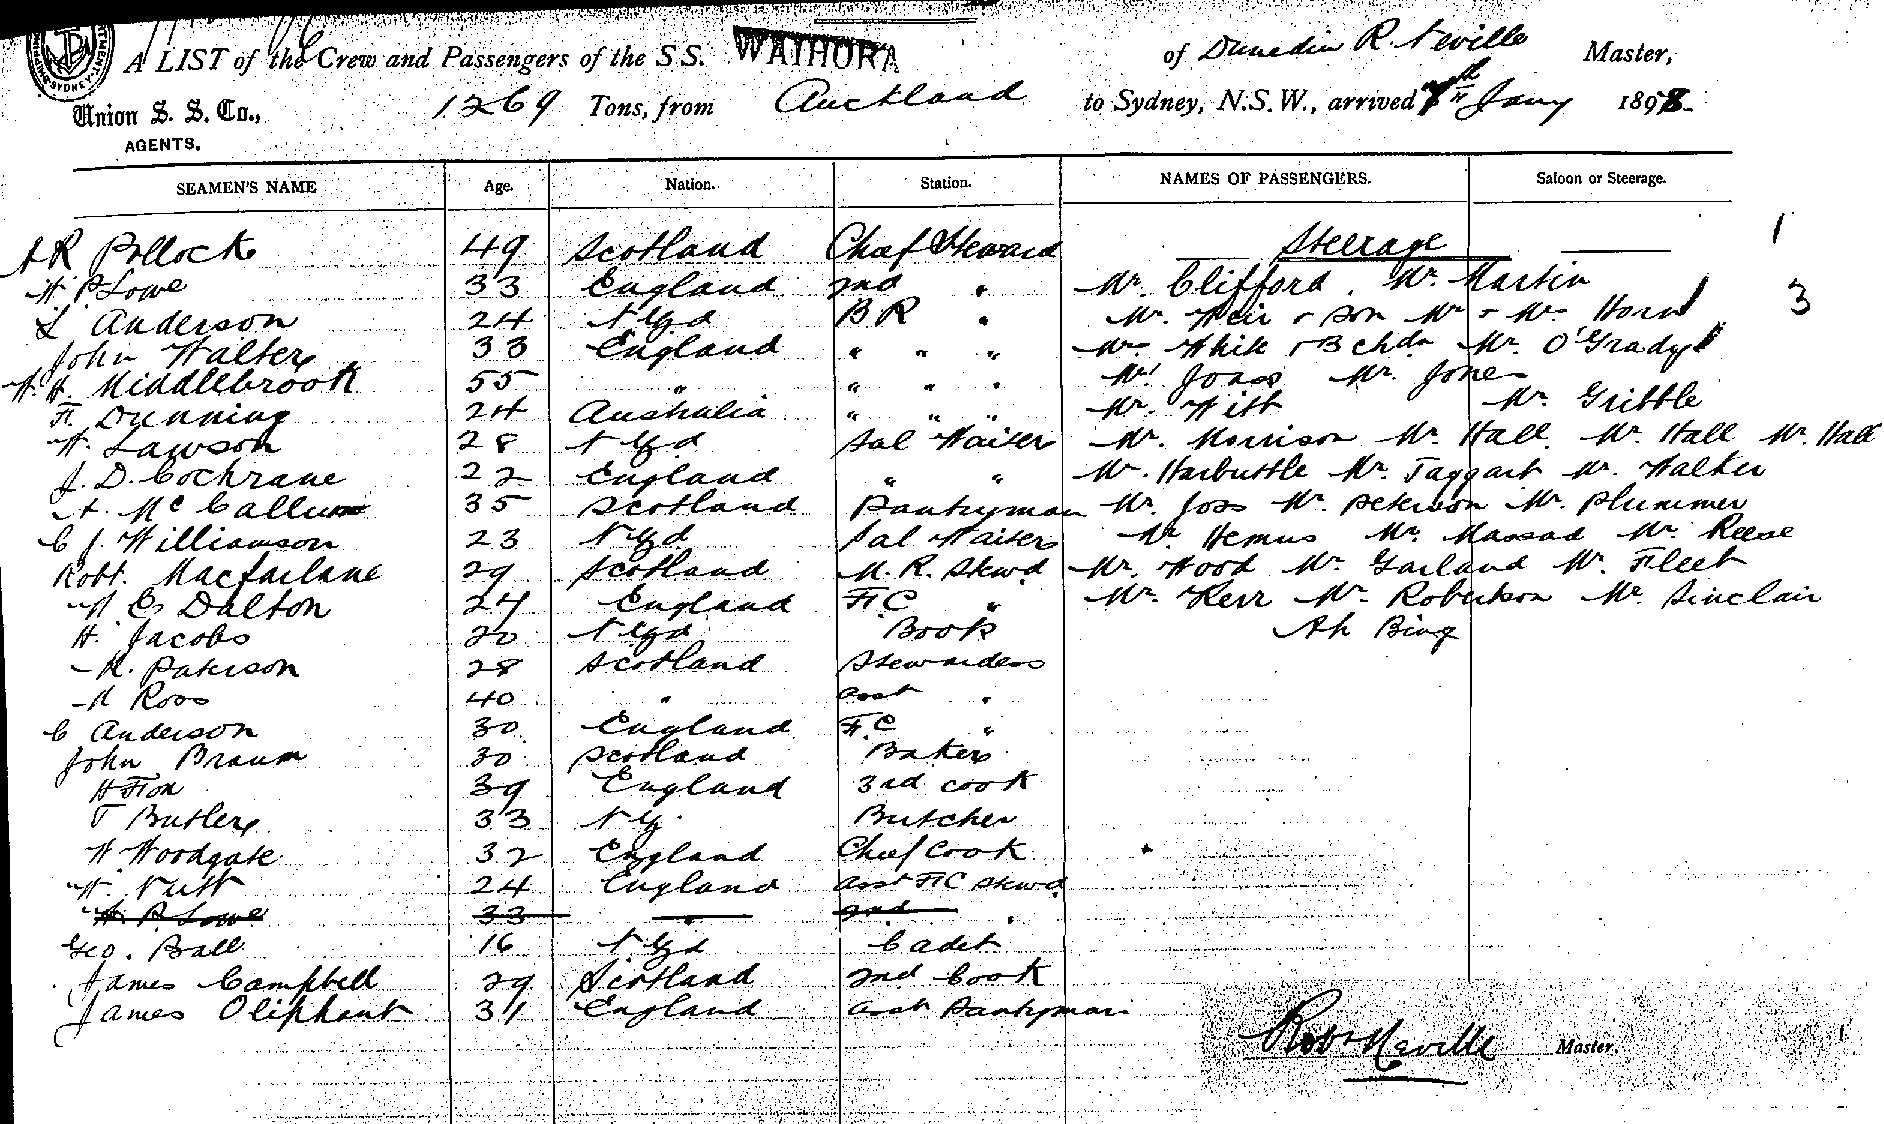 A LIST of the Crew and Passengers of the S.S. WAIHORA of Dunedin R. Neville Master,
Union S. S. Co., 1269 Tons, from Auckland to Sydney, N.S.W., arrived Jany 1898
AGENTS.
SEAMEN'S NAME Age. Nation. Station. NAMES OF PASSENGERS. Saloon or Steerage.
A R Pollock 49 Scotland Chief Steward Steerage 1
H P Lowe 33 England 2nd " Mr. Clifford. Mr. Martin
L Anderson 24 N Zd B R " Mr. Weir & son Mr & Mrs Horn 3
John Walters 33 England " " " Mrs White & 3 chdn Mr. O'Grady
H. H. Middlebrook 55 " " " " Mr Joass Mr. Jones
F. Dunning 24 Australia " " " Mr. Witt Mr. Gribble
W. Lawson 28 N Zd Sal Waiter Mr. Morrison Mr. Hall. Mr. Hall Mr. Hall
J. D. Cochrane 22 England " " Mr. Harbuttle Mr. Taggart Mr. Walker
A. McCallum 35 Scotland Pantryman Mr. Joss Mr. Peterson Mr. Plummer
C J. Williamson 23 N Zd Sal Waiter Mr. Hemus Mr. Massad Mr. Reese
Robt. Macfarlane 29 Scotland M. R. Stewd Mr. Wood Mr. Garland Mr. Fleet
W E Dalton 24 England F C " Mr. Kerr Mr. Robertson Mr. Sinclair
H. Jacobs 20 N Zd Book Ah Bing
M. Paterson 28 Scotland Stewardess
M Ross 40 " Asst "
C Anderson 30 England F. C "
John Braum 30 Scotland Baker
H Fion 39 England 3rd Cook
T Butler 33 N Z. Butcher
W Woodgate 32 England Chief Cook
W. Nutt 24 England Asst F C Stewd
H. P. Lowe 33 " 2nd "
Geo. Ball 16 N Zd Cadet
James Campbell 29 Scotland 2nd Cook
James Oliphant 31 England Asst Pantryman
Robt Neville Master.